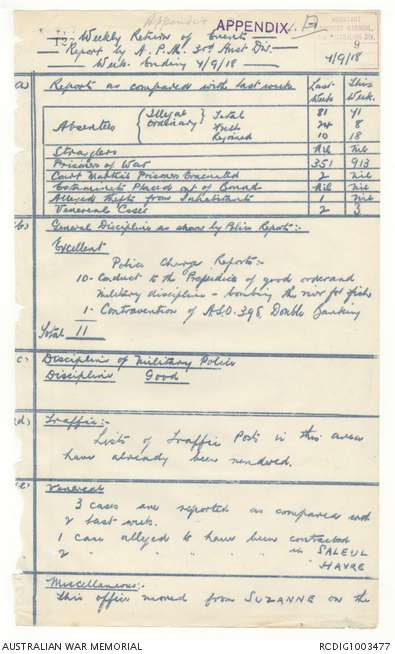 Appendix
APPENDIX
Weekly Return of Events
Report by A.P.M. 3rd Aust Div.
Week ending 4/9/18
4/9/18
(a) Reports as compared with last week Last Week This Week.
Absentees (Illegal Ordinary) Total 81 71
Fresh 8
Rejoined 10 18
Stragglers Nil Nil
Prisoners of War 351 913
Court Martial Prisoners Evacuated 2 nil
Estaminets Placed out of Bound Nil Nil
Alleged thefts from Inhabitants 1 nil
Venereal Cases 2 3
(b) General Discipline as shown by Police Reports:-
Excellent
Police Charge Reports:-
10- Conduct to the Prejudice of good order and
military discipline - bombing the river for fish
1- Contravention of A.S.O. 398 Double banking
Total 11
(c) Discipline of Military Police
Discipline Good
(d) Traffic:-
Lists of Traffic Posts in this area
have already been rendered.
(e) Venereal
3 cases are reported as compared with
2 last week.
1 case alleged to have been contracted
2 " " " " in
HAVRE
Miscellaneous:-
This office moved from SUZANNE on the
AUSTRALIAN WAR MEMORIAL
RCDIG1003477